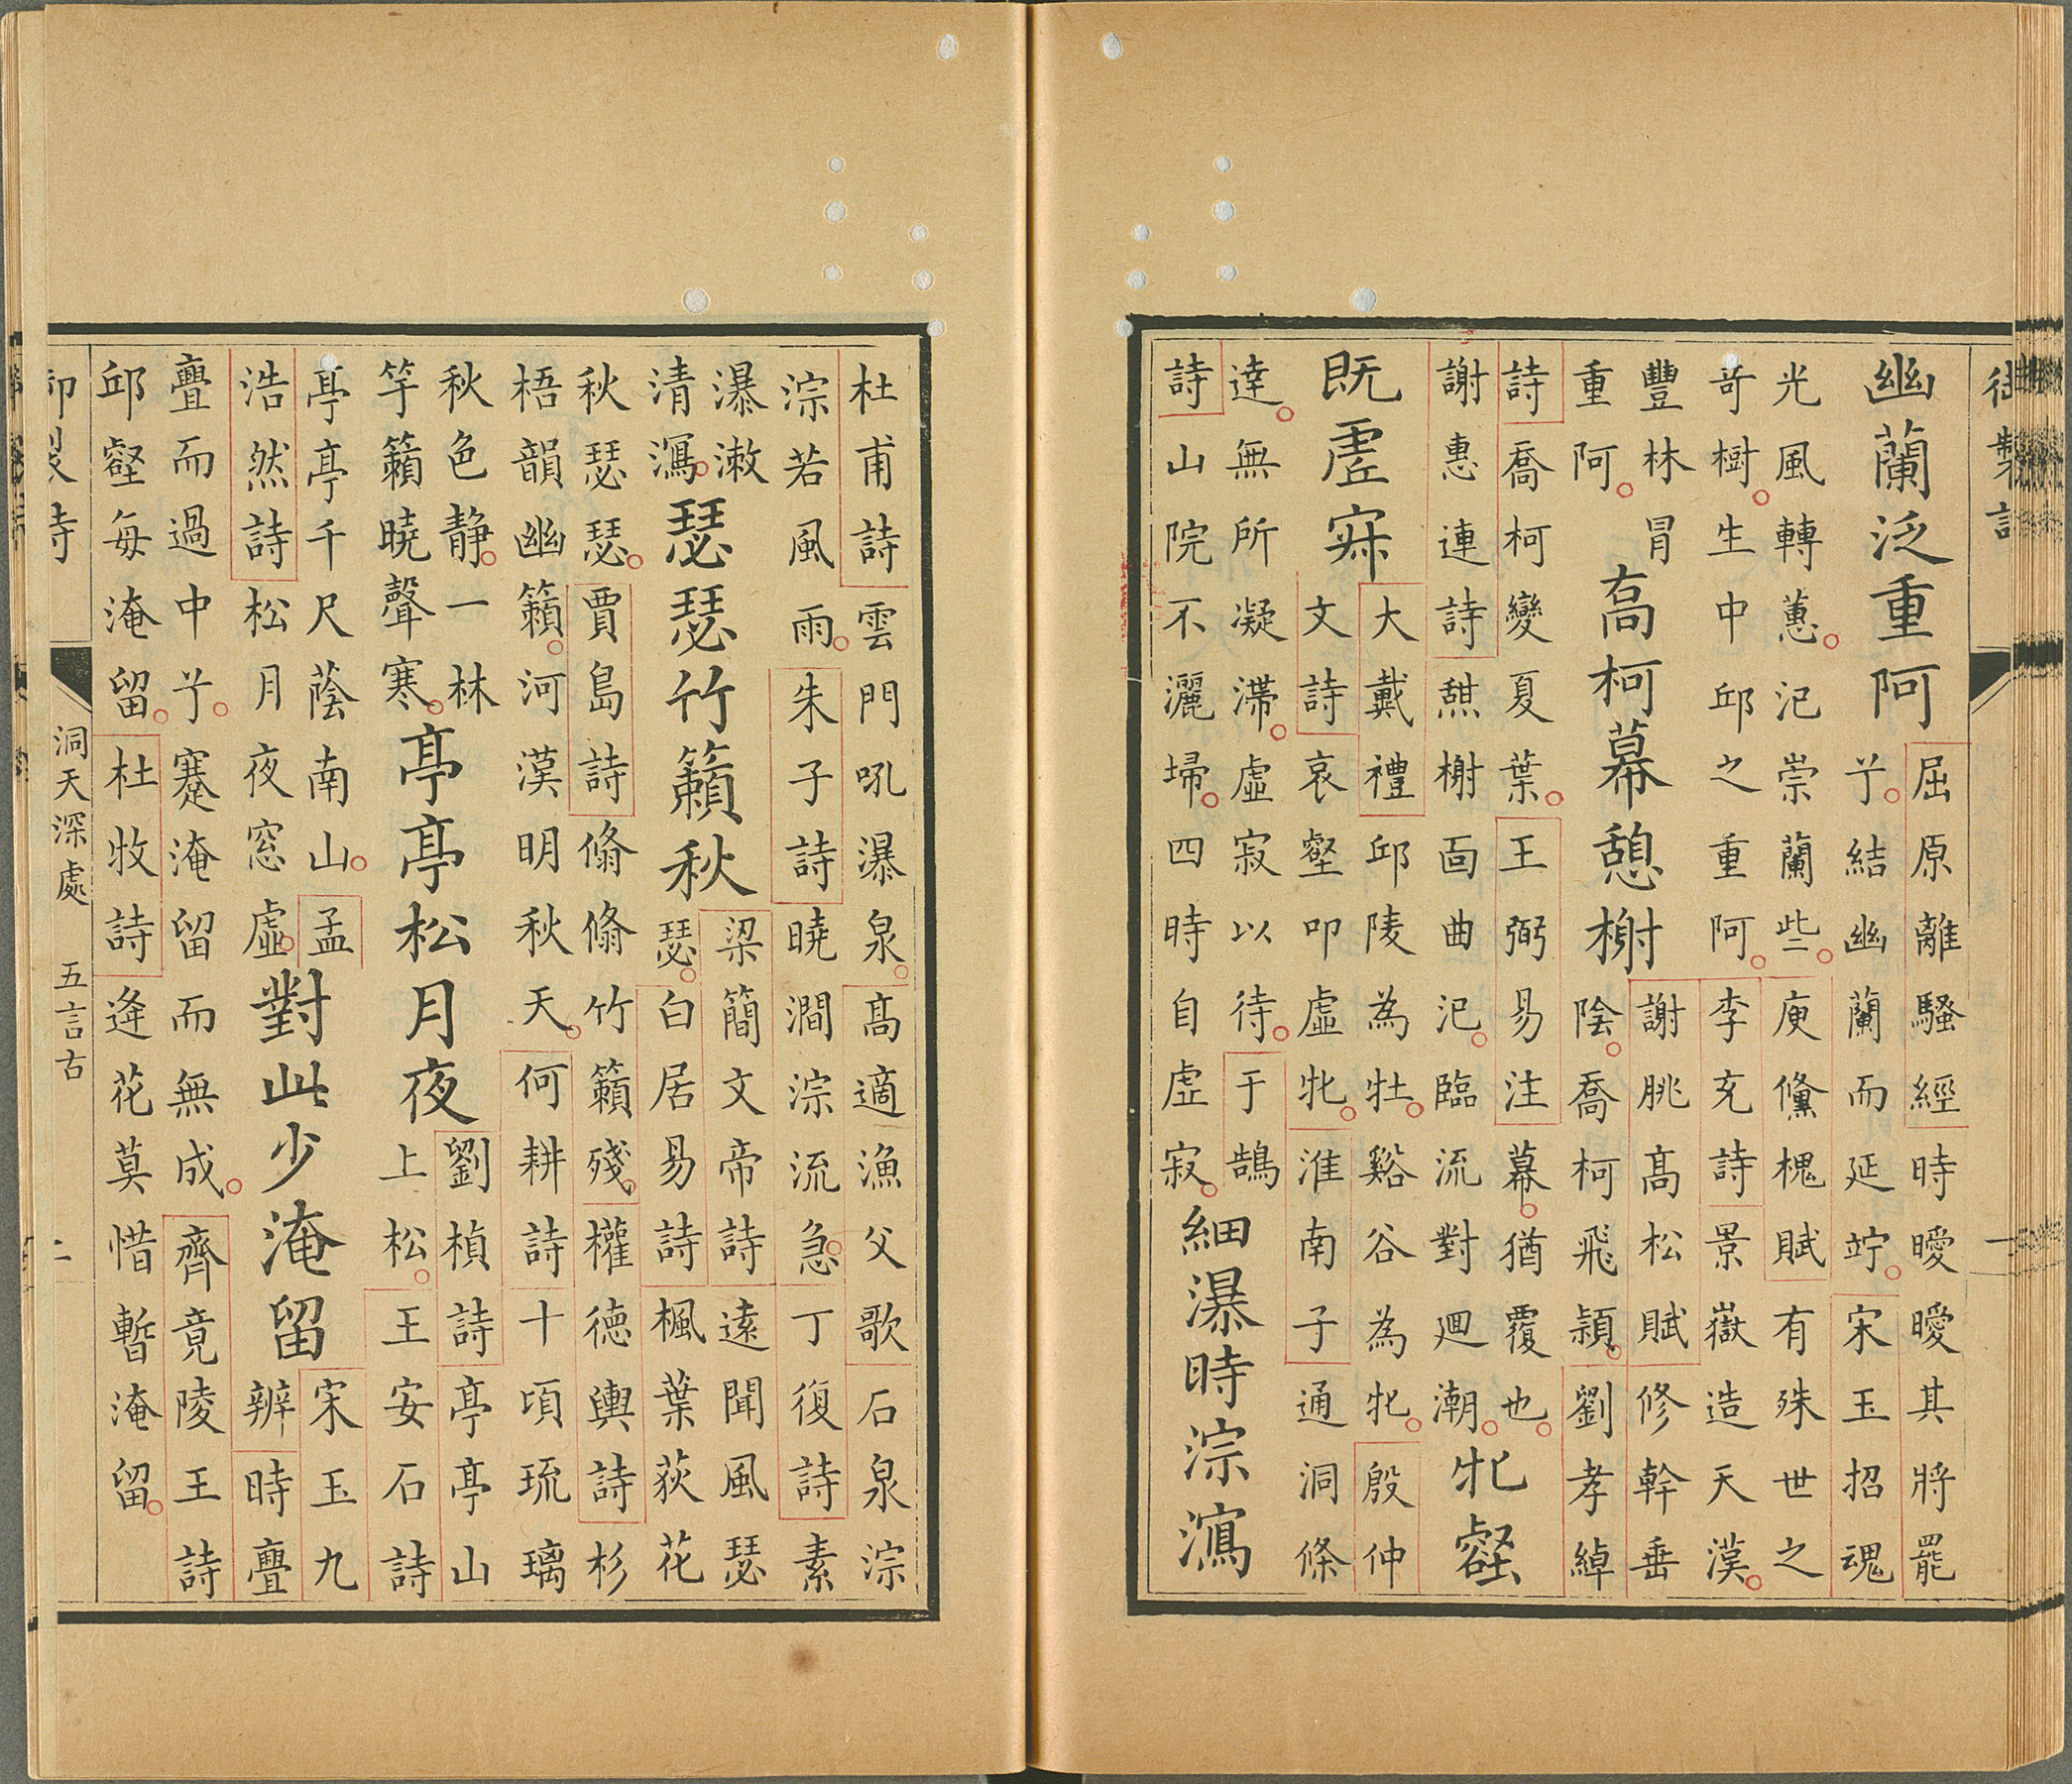 御製詩
一
幽蘭泛重阿
屈原離騷經時曖曖其將罷
兮。結幽蘭而延竚。宋玉招魂
光風轉蕙。汜崇蘭些。庾儵槐賦有殊世之
奇樹。生中邱之重阿。李充詩景嶽造天漢。
豐林冒
重阿。
高柯幕憩榭
謝朓高松賦修幹垂
陰。喬柯飛潁。劉孝綽
詩喬柯變夏葉。王弼易注幕。猶覆也。
謝惠連詩憇榭面曲汜。臨流對廻潮。
牝壑
既虛寂
大戴禮邱陵為牡。谿谷為牝。殷仲
文詩哀壑叩虛牝。淮南子通洞條
達。無所凝滯。虛寂以待。于鵠
詩山院不灑埽。四時自虛寂。
細瀑時淙瀉
杜甫詩雲門吼瀑泉。高適漁父歌石泉淙
淙若風雨。朱子詩曉澗淙流急。丁復詩素
瀑漱
清瀉。
瑟瑟竹籟秋
梁簡文帝詩遠聞風瑟
瑟。白居易詩楓葉荻花
秋瑟瑟。賈島詩翛翛竹籟殘。權德輿詩杉
梧韻幽籟。河漢明秋天。何耕詩十頃琉璃
秋色静。一林
竽籟曉聲寒。
亭亭松月夜
劉楨詩亭亭山
上松。王安石詩
亭亭千尺蔭南山。孟
浩然詩松月夜窓虛。
對此少淹留
宋玉九
辨時亹
亹而過中兮。蹇淹留而無成。齊竟陵王詩
邱壑每淹留。杜牧詩逢花莫惜暫淹留。
御製詩
洞天深處 五言古
二